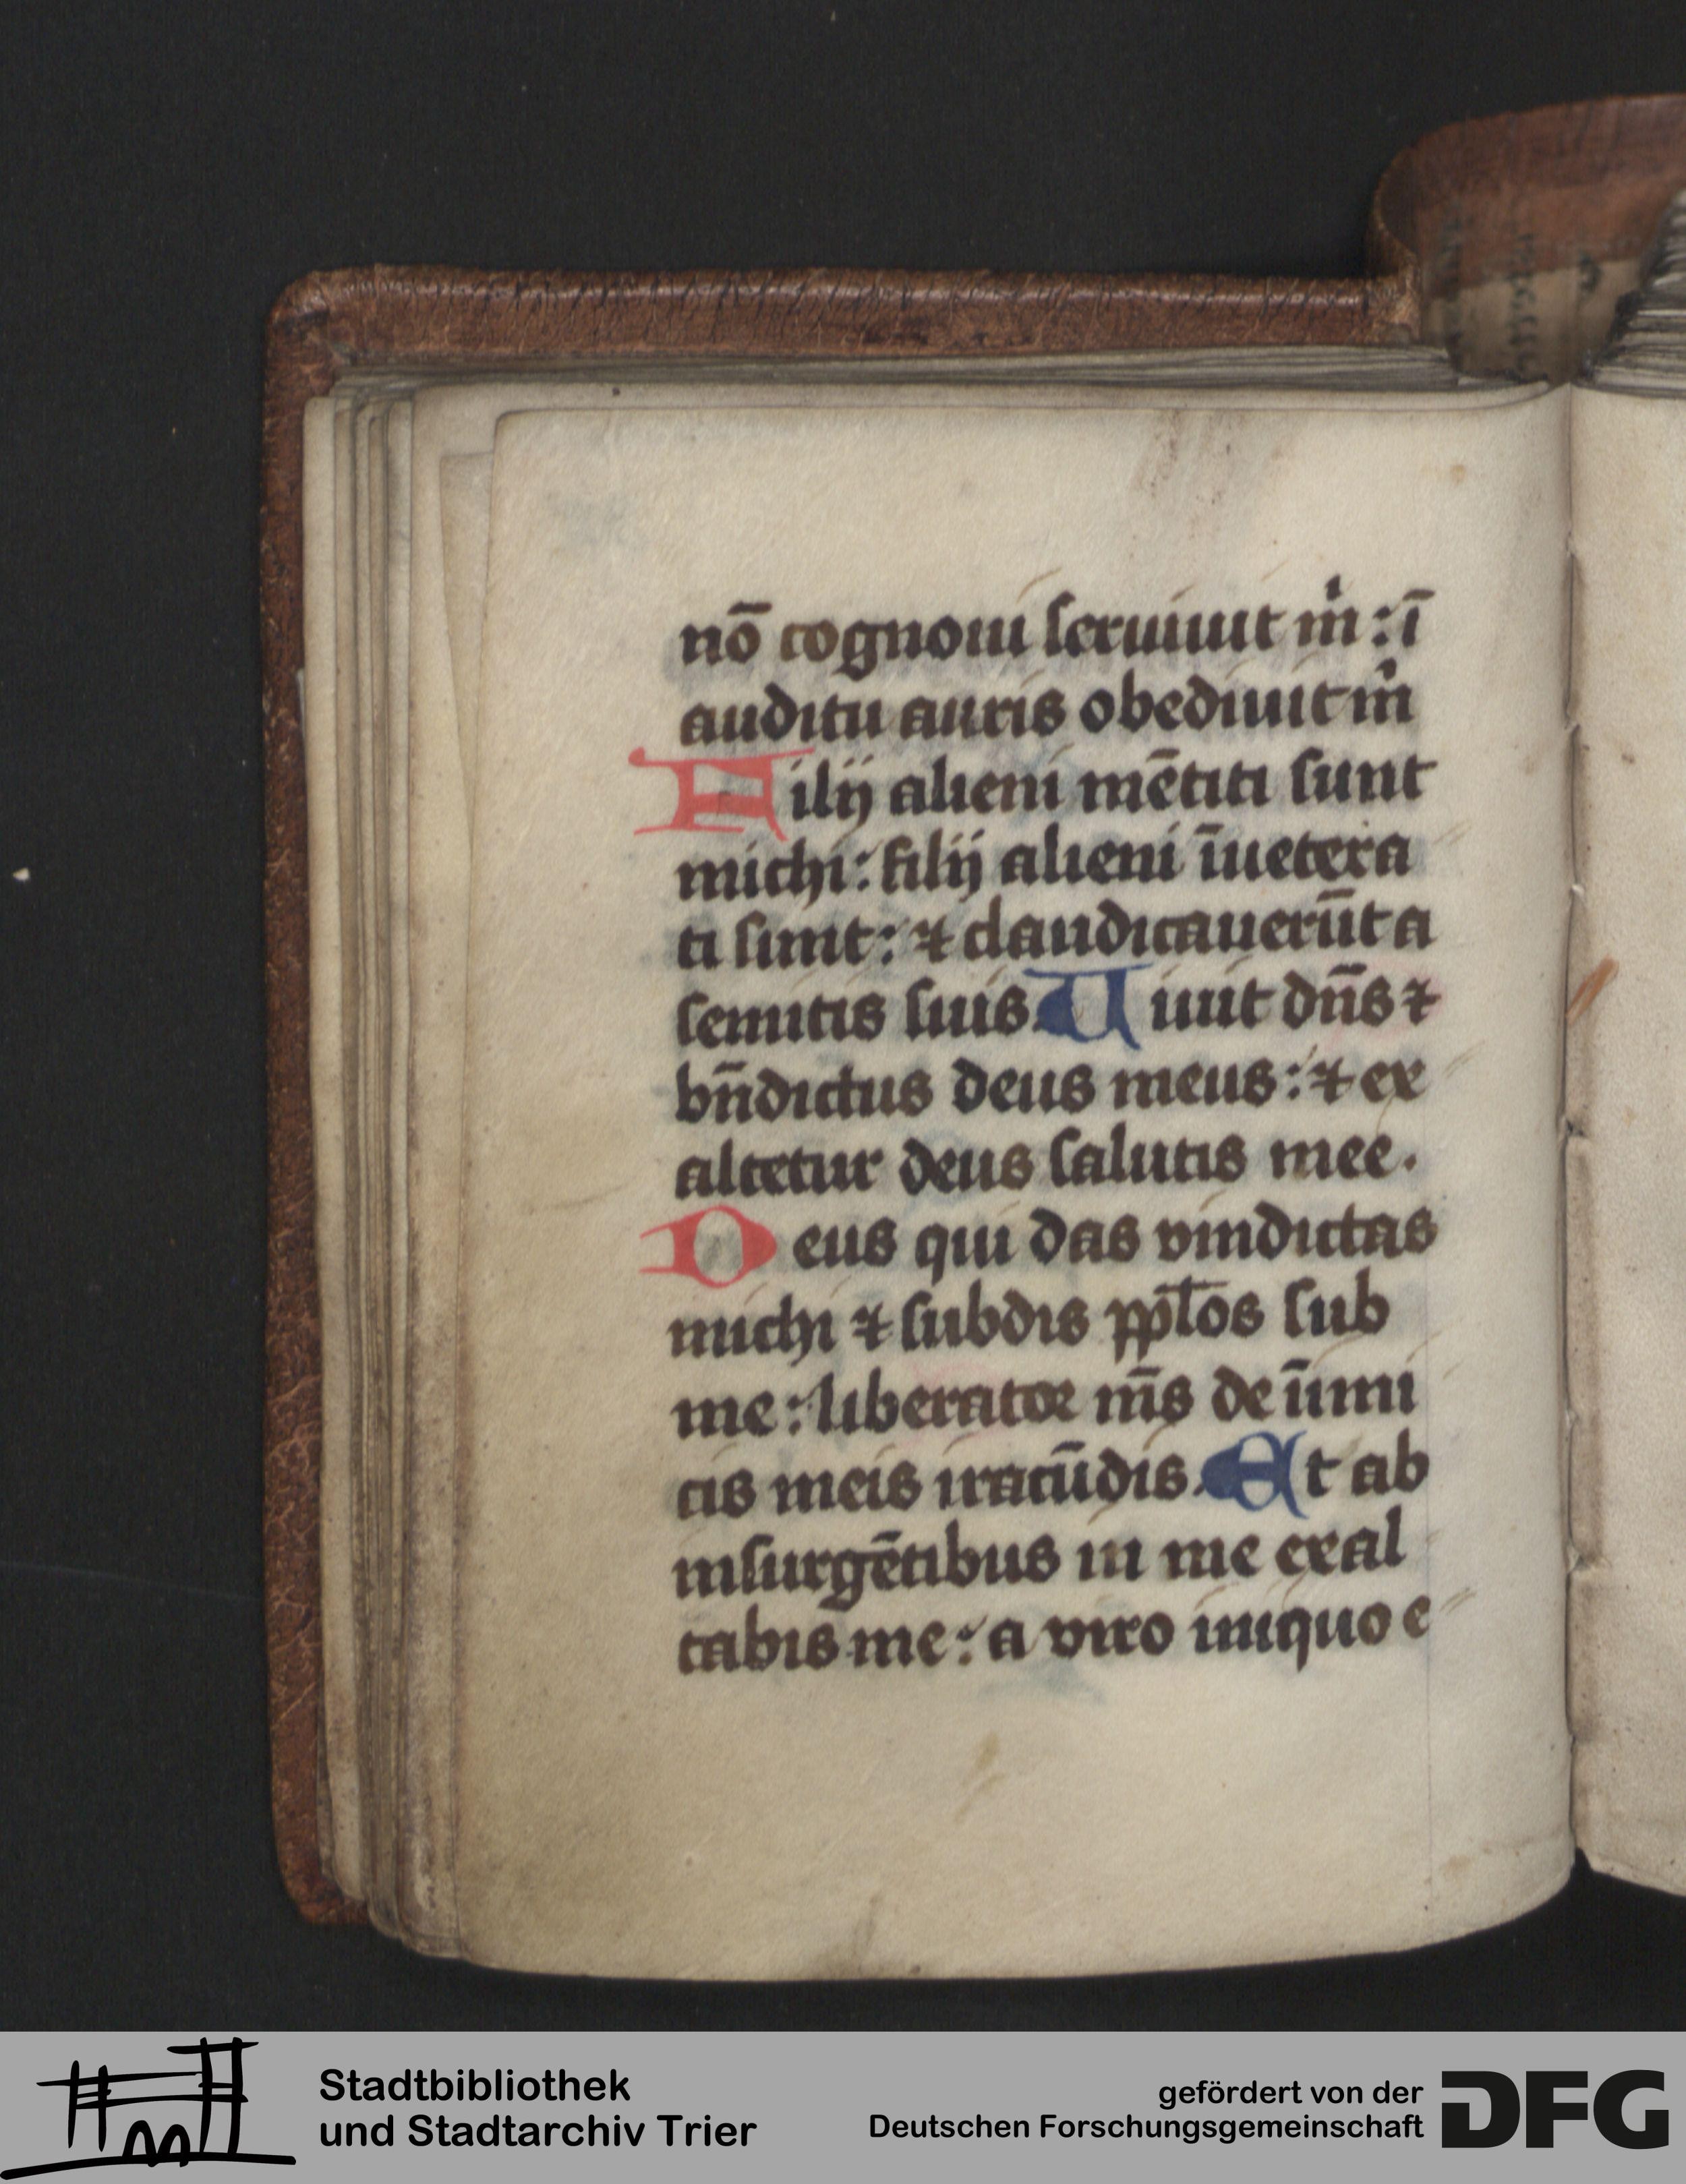 nō cognoui seruiuit m̍ : ī
auditu auris obediuit m̍
Filij alieni mētiti sunt
michi : filij alieni īuetera
ti sunt : ⁊ claudicauerūt a
semitis suis. Uiuit dn̄s ⁊
bn̄dictus deus meus : ⁊ ex
altetur deus salutis mee .
Deus qui das vindictas
michi ⁊ subdis pp̄los sub
me : liberator m̄s de īimi
cis meis iracūdis. Et ab
insurgētibus in me exal
tabis me : a viro iniquo e
Stadtbibliothek
und Stadtarchiv Trier
gefördert von der
Deutschen Forschungsgemeinschaft
DFG